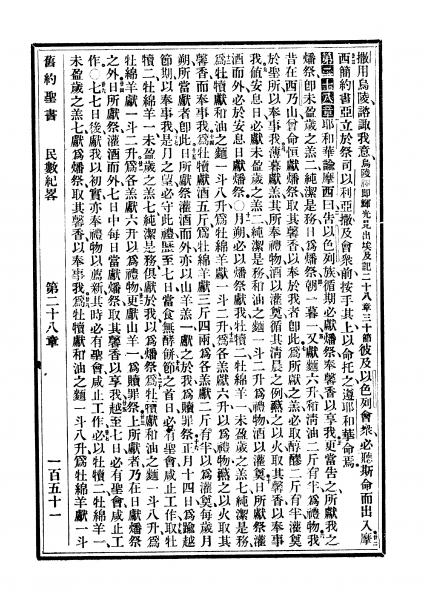 撒用烏陵諮諏我意烏陵闢輝光見出埃及記二十八章三十節彼及以色列會衆必聽斯命而出入摩
西簡約書亞立於祭司以利亞撒及會衆前按手其上以命托之遵耶和華命焉
第二十八章耶和華諭摩西曰告以色列族循期必獻燔祭馨香以享我更當告之所獻我之
燔祭卽未盈歲之羔二純潔是務日爲燔祭朝一暮一又獻麵六升和淸油二斤有半爲禮物我
昔在西乃山曾命恒獻燔祭取其馨香以奉於我者卽此爲所獻之羔必取醇醪二斤有半灌奠
於聖所以奉事我薄暮獻羔其所奉禮物以灌奠循其淸晨之例爇之以火取其馨香以奉事
我値安息日必獻未盈歲之羔二純潔是務和油之麵一斗二升爲禮物酒以灌奠日所獻燔祭灌
酒而外必於安息日獻此○月朔必以燔祭獻我牡犢二牡綿羊一未盈歲之羔七純潔是務
爲牡犢獻和油之麵一斗八升爲牡綿羊獻一斗二升爲各羔獻六升以爲禮物爇之以火取其
馨香而奉事我爲牡犢獻酒五斤爲牡綿羊獻三斤四兩爲各羔獻二斤有半以爲灌奠每歲月
朔所當獻者卽此日所獻燔祭灌酒而外亦以山羊羔一獻之於我爲贖罪祭正月十四日爲踰越
節期以奉事我是月之望必守此禮歷至七日當食無酵餅節之首日必有聖會咸止工作取牡
犢二牡綿羊一未盈歲之羔七純潔是務俱獻於我以爲燔祭爲牡犢獻和油之麵一斗八升爲
牡綿獻一斗二升爲各羔獻六升以爲禮物更獻山羊一爲贖罪祭上所獻者乃在日獻燔祭
之外日所獻祭灌酒而外七日中每日當獻燔祭取其馨香以享我越至七日必有聖會咸止工
作○七七日後獻我以初實亦奉禮物以薦新其時必有聖會咸止工作必以牡犢二牡綿羊一
未盈歲之羔七獻爲燔祭取其馨香以奉事我爲牡犢獻和油之麵一斗八升爲牡綿羊獻一斗
舊約聖書 民數紀畧 第二十八章 一百五十一